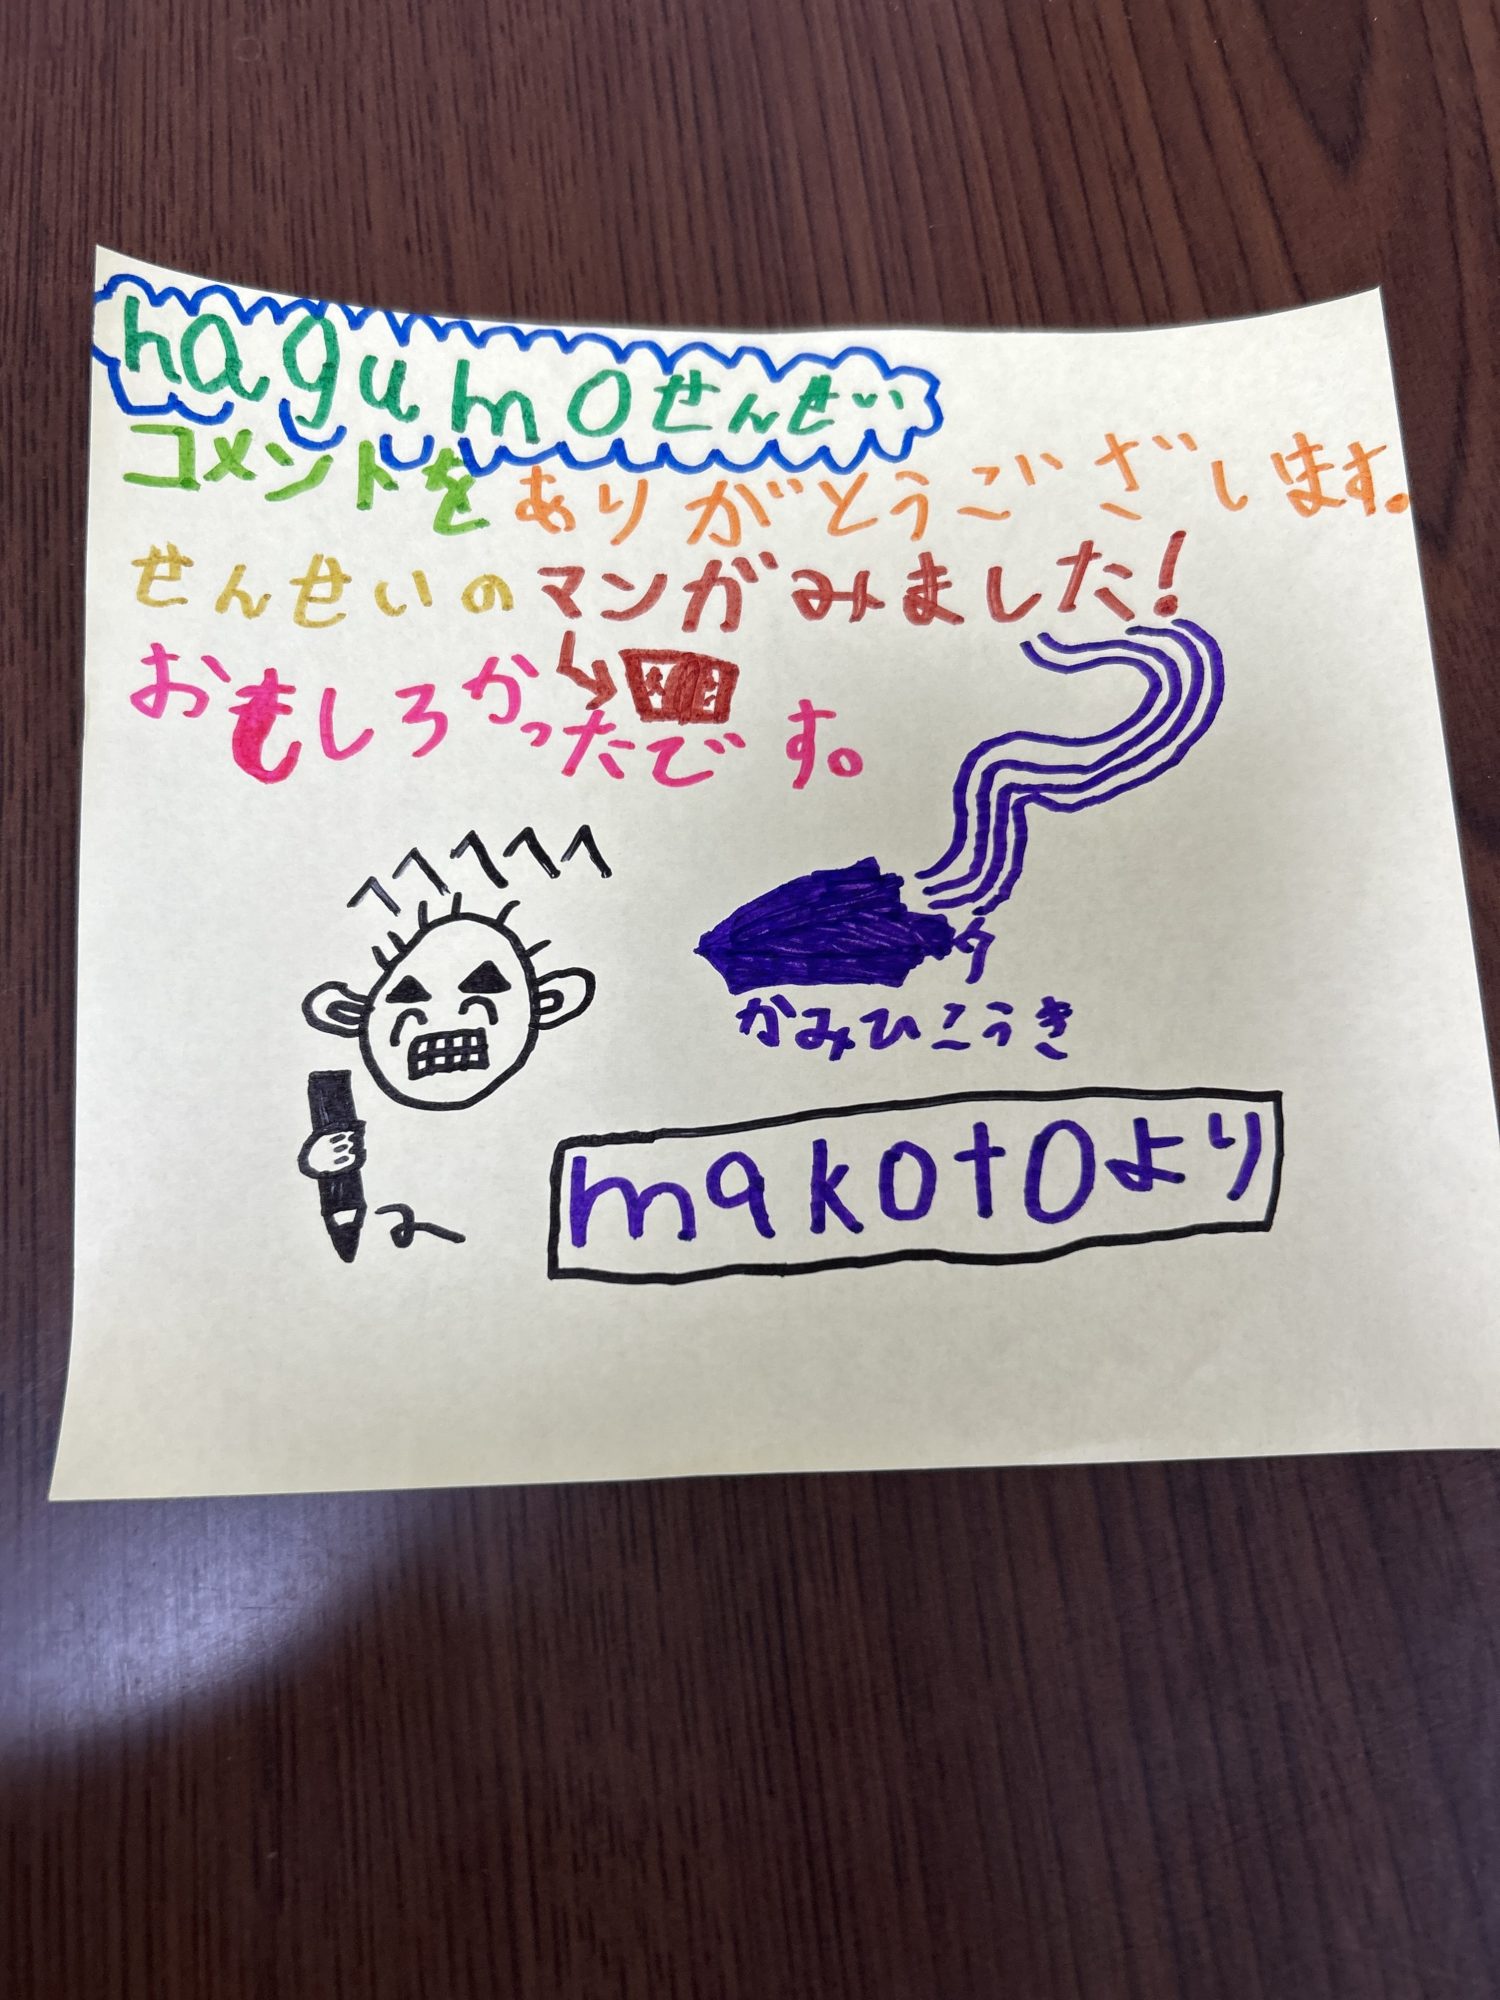 nagumoせんせい
コメントをありがとうございします。
せんせいのマンガみました!
おもしろかったです。
かみひこうき
makotoより